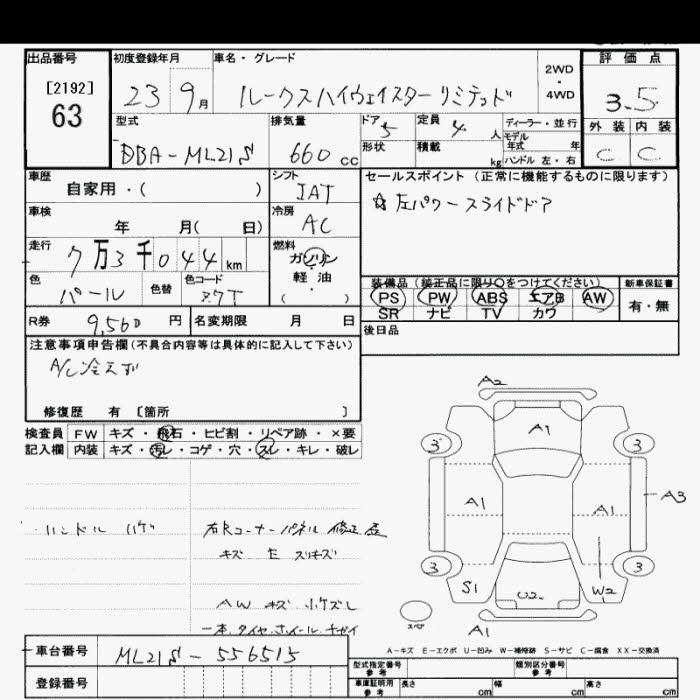 出品番号 初度登録年月 車名・グレード 2WD・4WD 評価点
[2192]
63
23 9月 ルークスハイウェイスター リミテッド 3.5
型式 排気量 ドア 5 定員 4 人 ディーラー・並行 外装 内装
DBA-ML21S 660 CC 形状 積載 kg モデル年式 年 ハンドル 左・右 C C
車歴 自家用・( ) シフト IAT セールスポイント (正常に機能するものに限ります)
☆左パワースライドドア
車検 年 月( 日) 冷房 AC
走行 7万3千044 km 燃料 ガソリン・軽・油 ( )
装備品 (純正品に限り○をつけてください) 新車保証書
色 パール 色替 色コード PS PW ABS エアB AW 有・無
SR ナビ TV カワ
R券 9,560 円 名変期限 月 日 後日品
注意事項申告欄(不具合内容等は具体的に記入して下さい)
A/C冷えず
修復歴 有 〔箇所 〕
検査員 FW キズ・飛石・ヒビ割・リペア跡・×要
記入欄 内装 キズ・汚レ・コゲ・穴・スレ・キレ・破レ
ハンドル ハゲ 右Rコーナーパネル 修正歴
キズ E スリキズ
AW キズ
一本、タイヤ、ホイール チガイ
A2
3 A1 3
A1 A1 A3
3 3
S1 U2 W2
スペア A1
A-キズ E-エクボ U-凹み W-補修跡 S-サビ C-腐食 XX-交換済
車台番号 ML21S-556515
登録番号
型式指定番号 参考 類別区分番号 参考
車庫証明用 参考 長さ cm 幅 cm 高さ cm